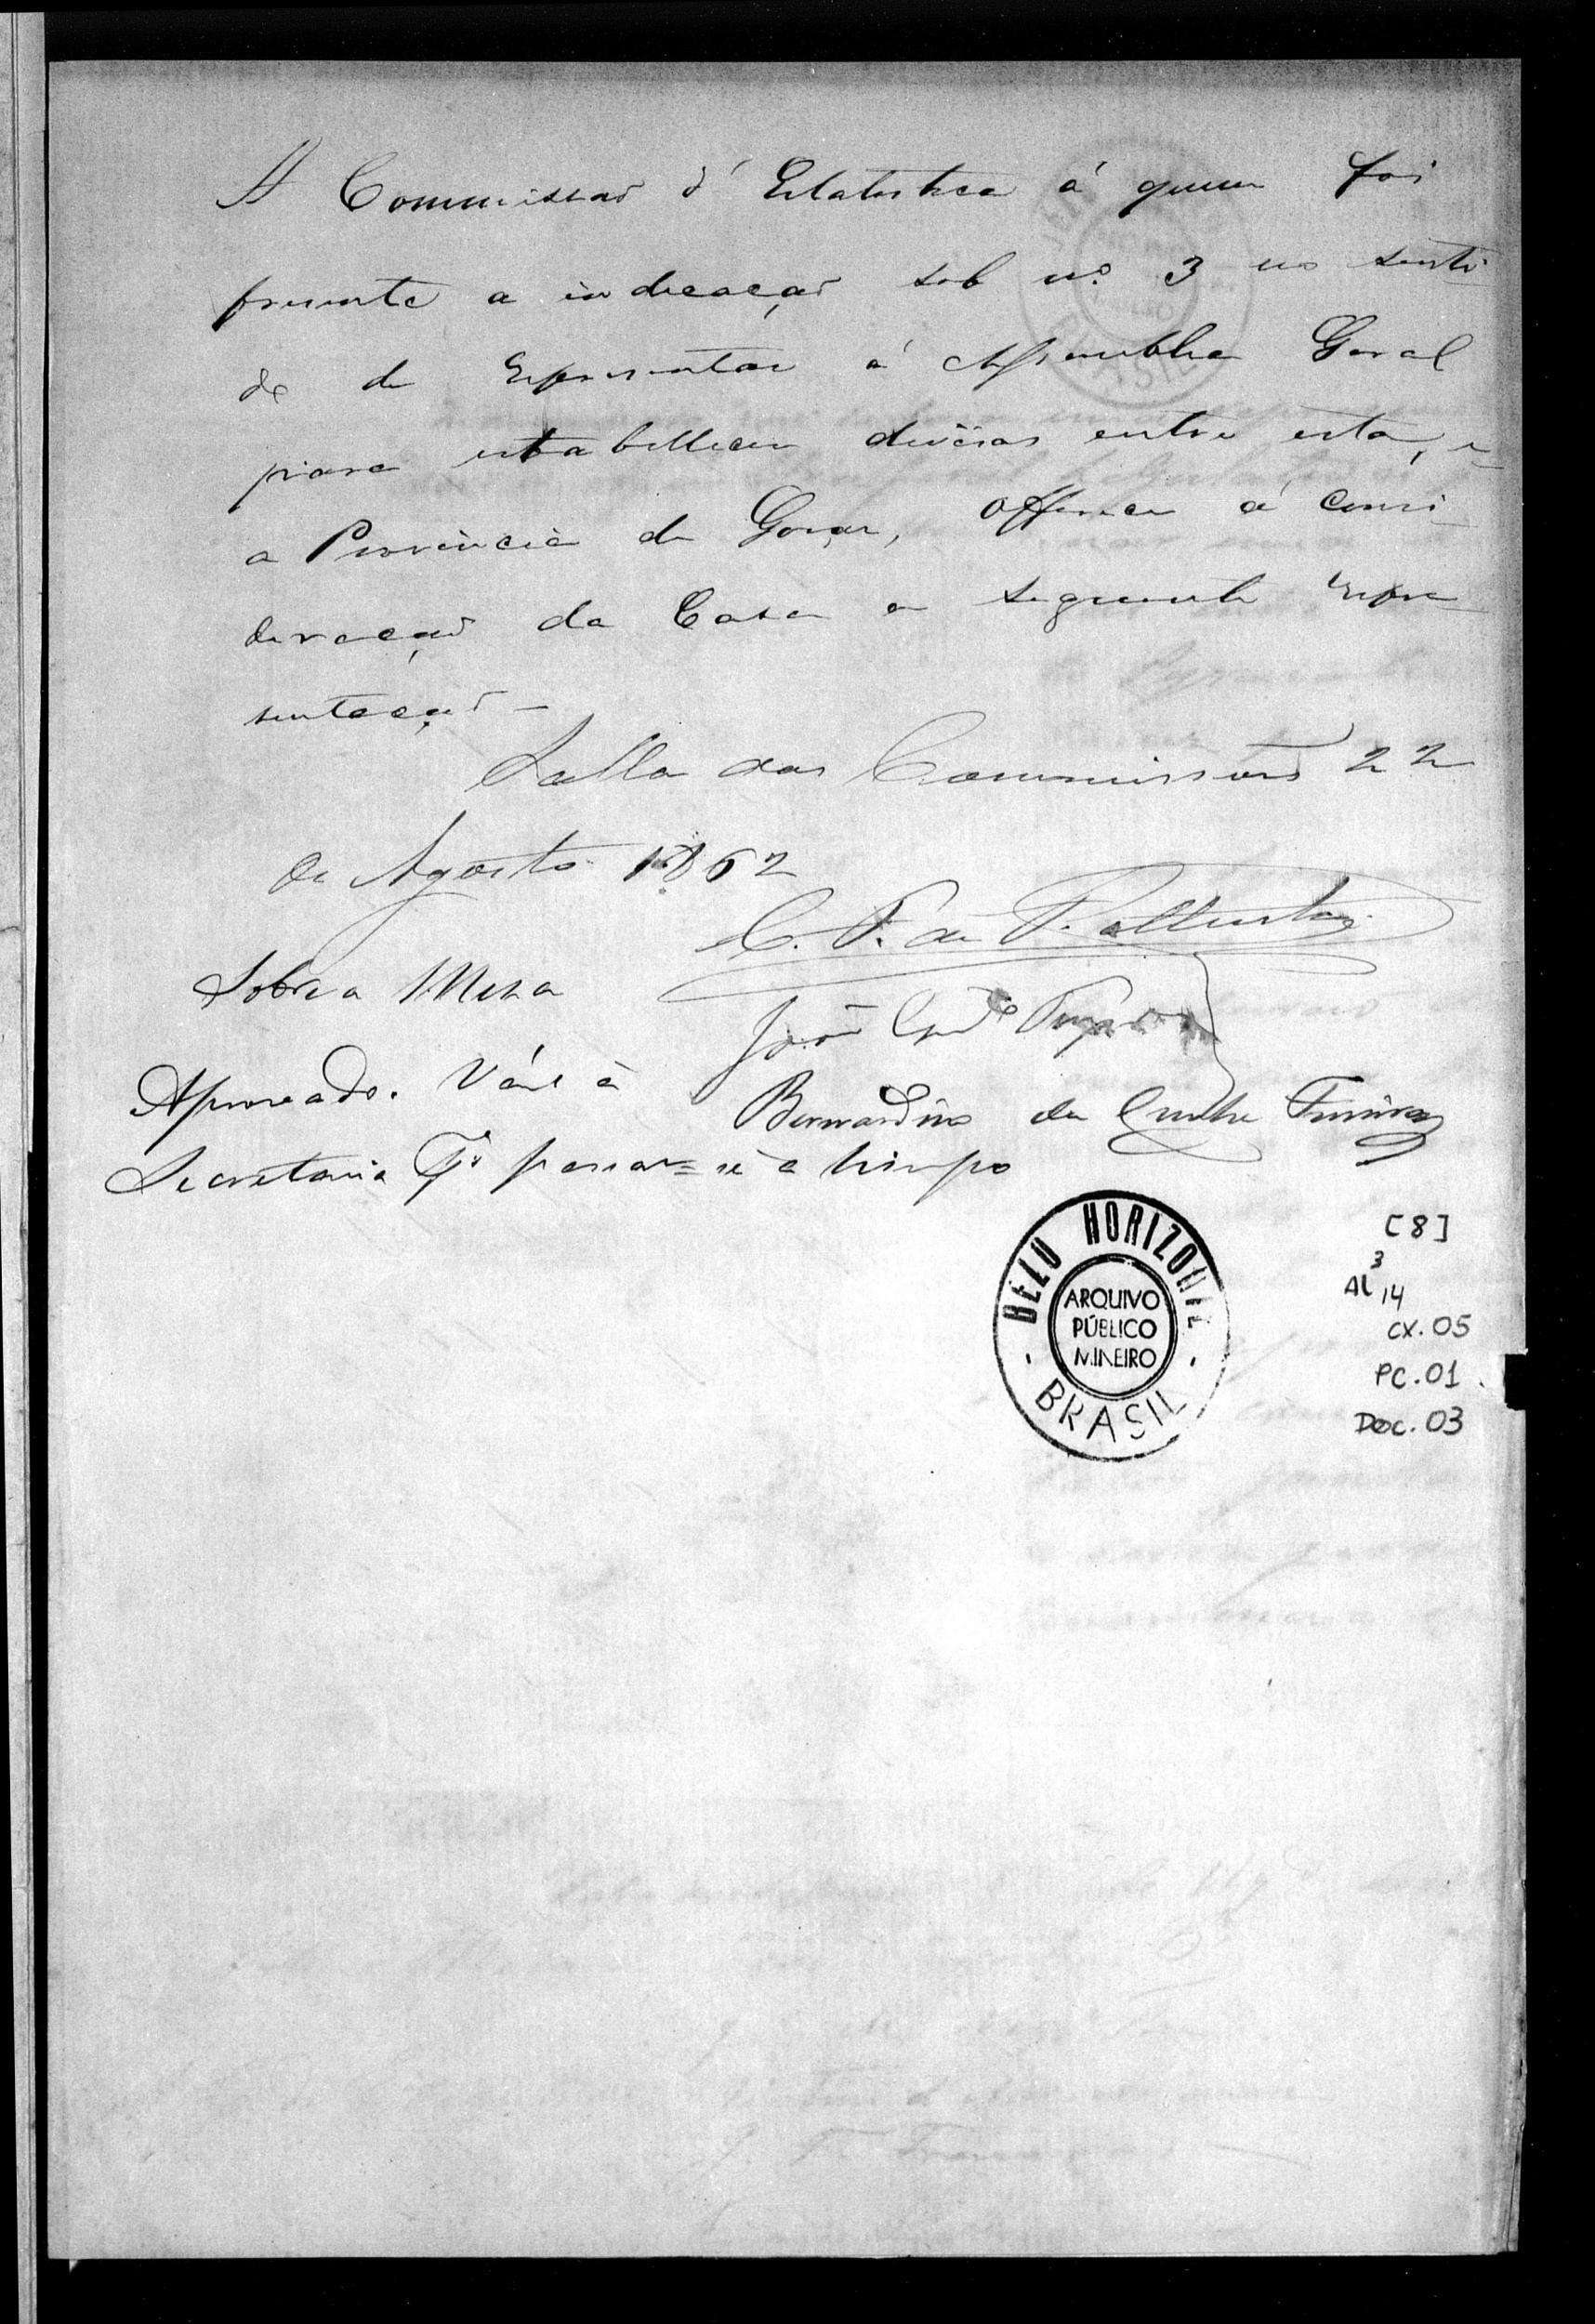 A Commissaõ d' Estatistica á quem foi
presente a indicaçaõ sob nº 3 no senti-
do de representar á Assemblea Geral
para estabellecer divisas entre esta, e
a Provincia de Goyas, offerece á consi-
deraçaõ da Casa a seguinte repre-
sentaçaõ -
Salla das Commissoens 22
de Agosto 1862
C. P. de
Sobre a Mesa
João
Approvado. Vá á
Bernardino da Cunha Ferreira
Secretaria pª passar-se a limpo
BELO HORIZONTE
ARQUIVO
PÚBLICO
MINEIRO
BRASIL
[8]
AL 3 14
CX. 05
PC. 01
Doc. 03